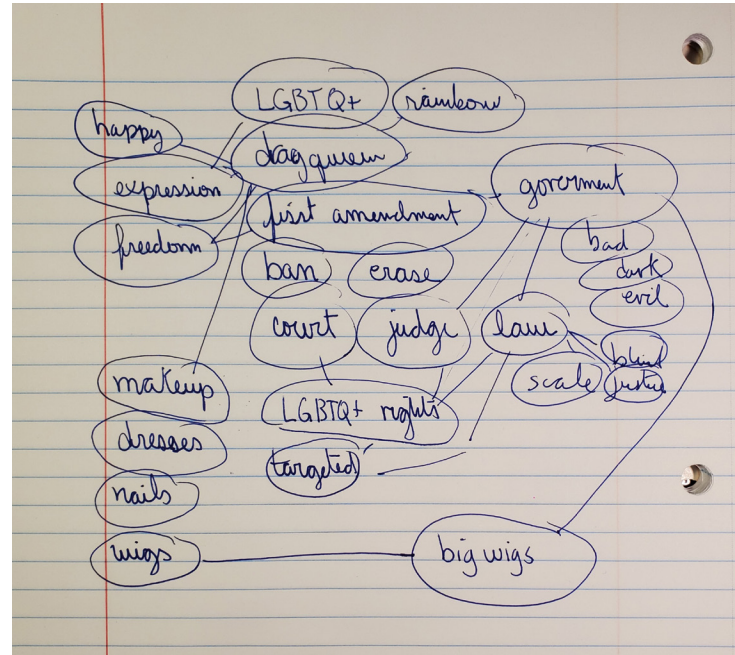 LGBTQ+
rainbow
happy
drag queen
expression
goverment
first amendment
freedom
bad
ban
erase
dark
evil
court
judge
law
blind
makeup
scale
justice
LGBTQ+ rights
dresses
targeted
nails
wigs
big wigs